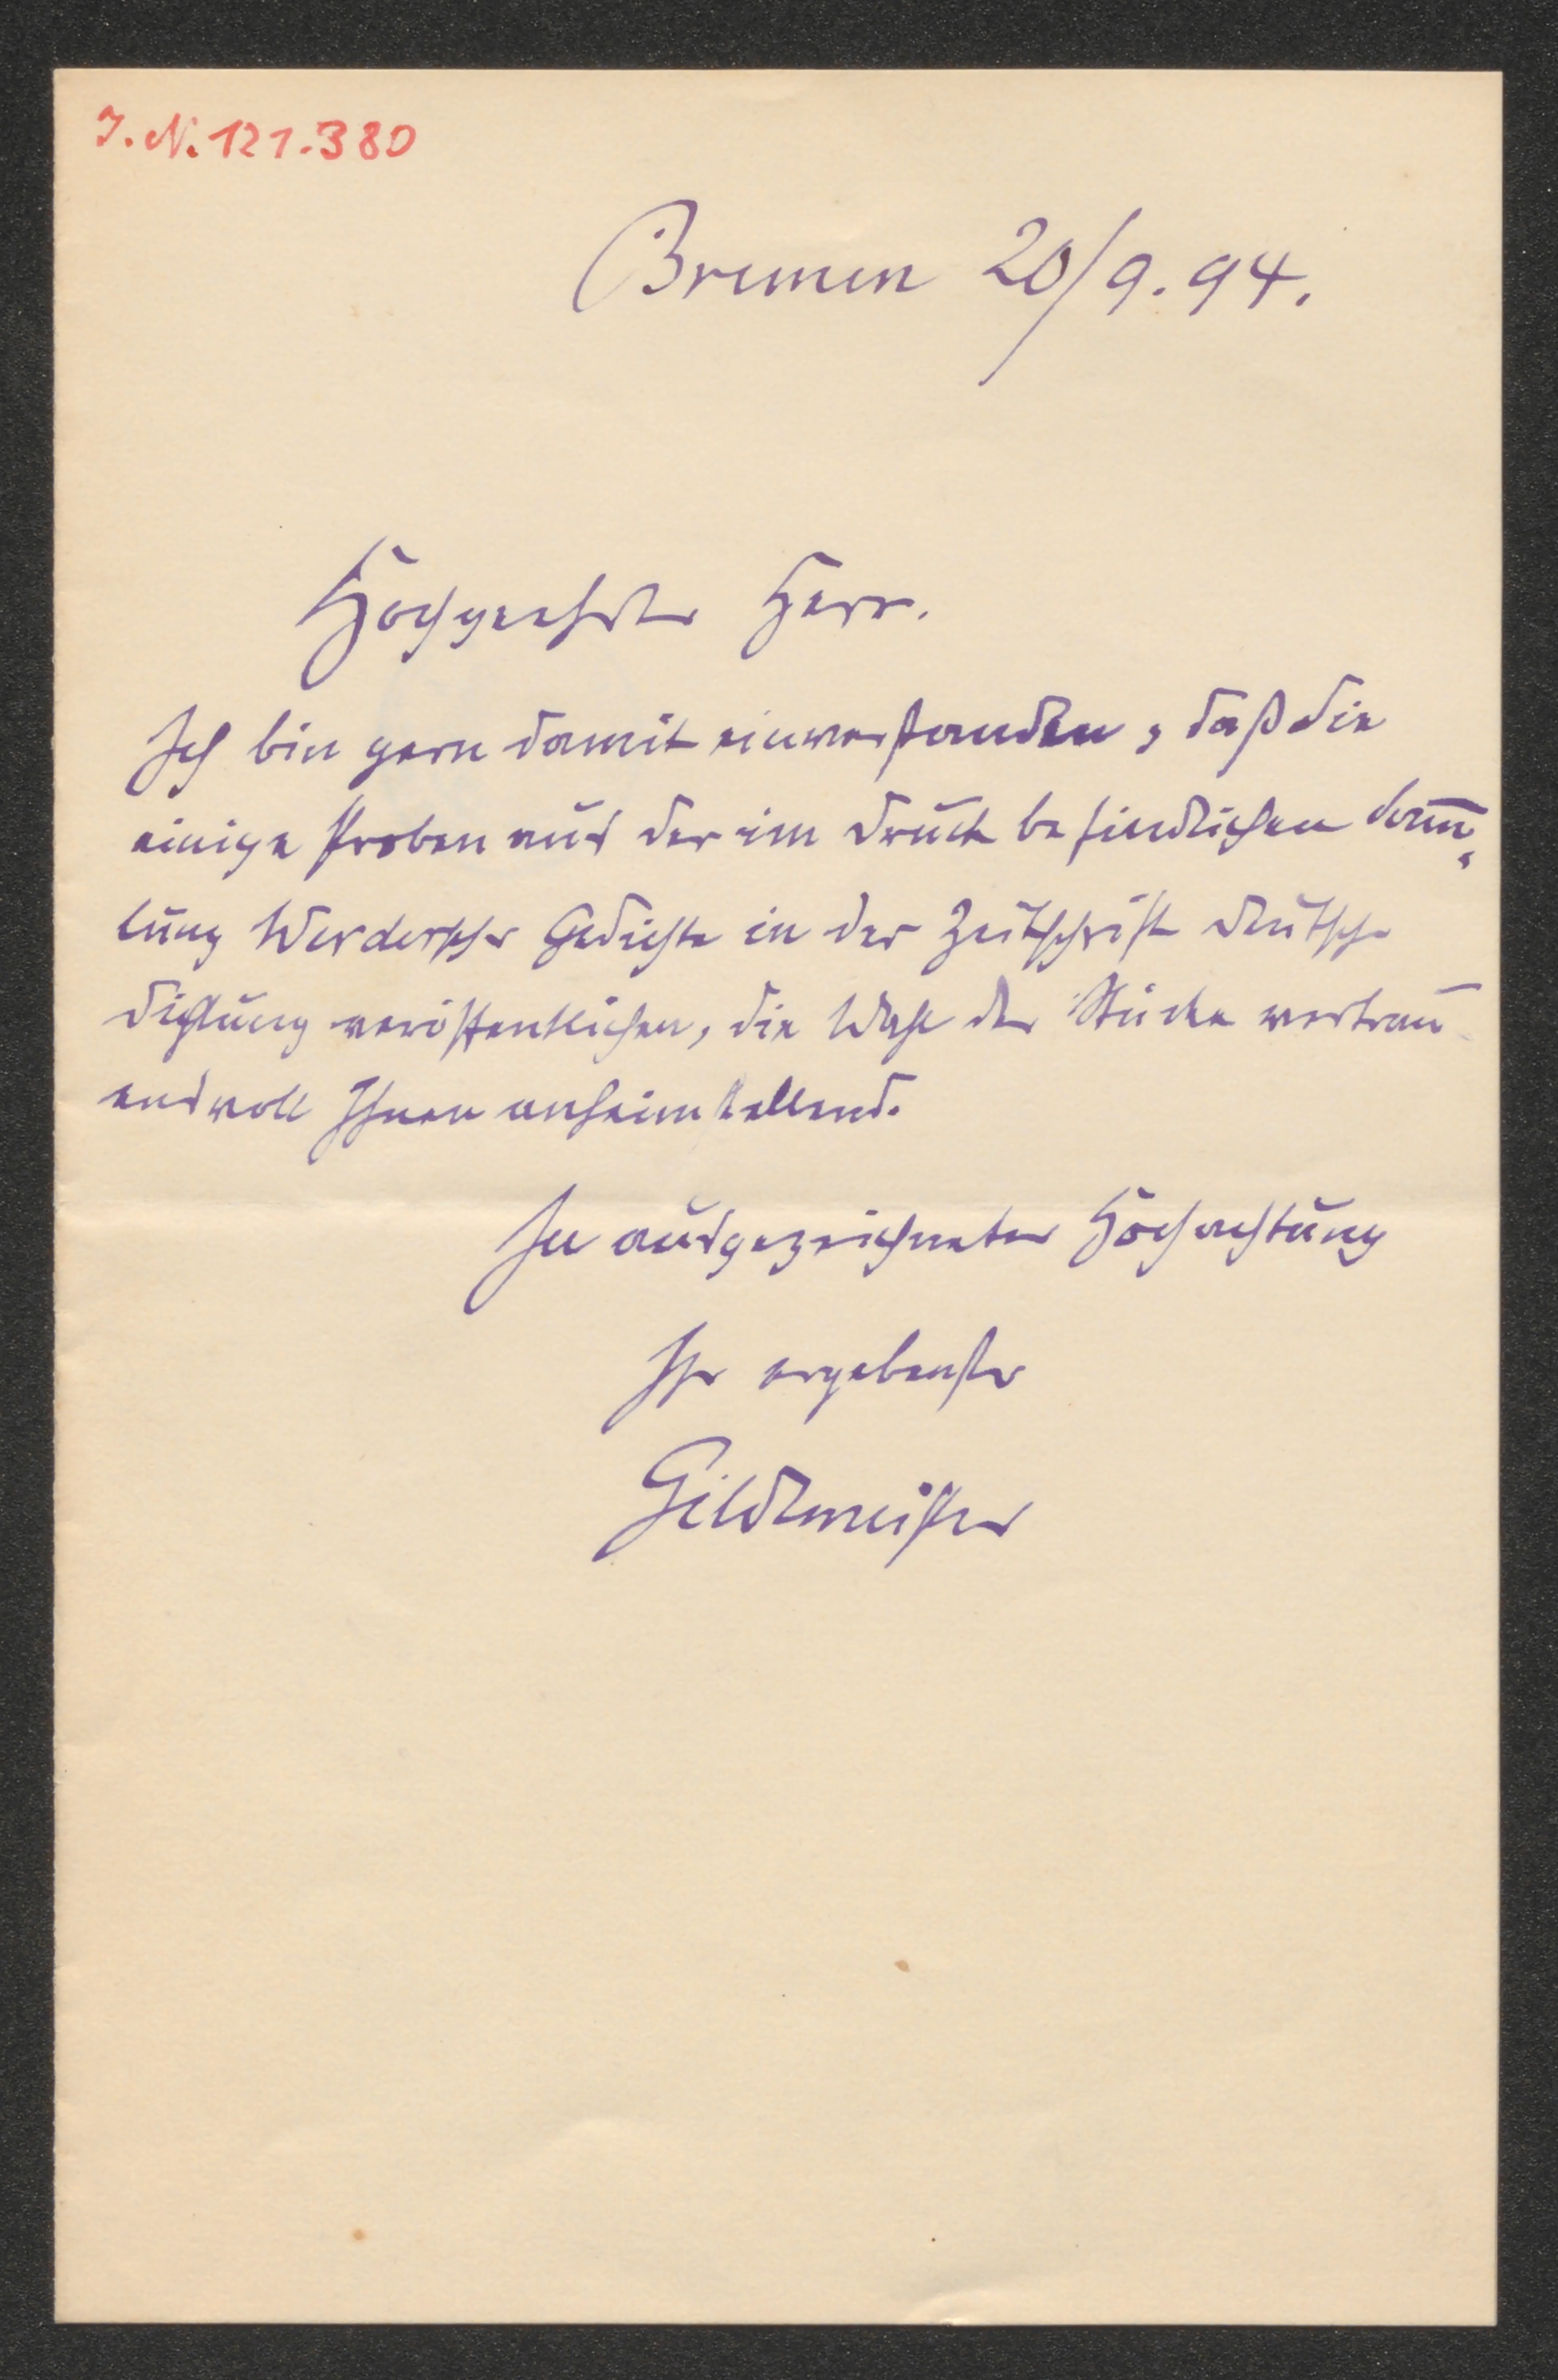 J. N. 121.380
Bremen 20/9. 94.
Hochgeehrter Herr.
Ich bin gern damit einverstanden, daß Sie
einige Proben aus der im Druck befindlichen Sam̅-
lung Werderscher Gedichte in der Zeitschrift Deutsche
Dichtung veröffentlichen, die Wahl der Stücke vertrau-
ensvoll Ihnen anheimstellend.
In ausgezeichneter Hochachtung
Ihr ergebenster
Gildemeister